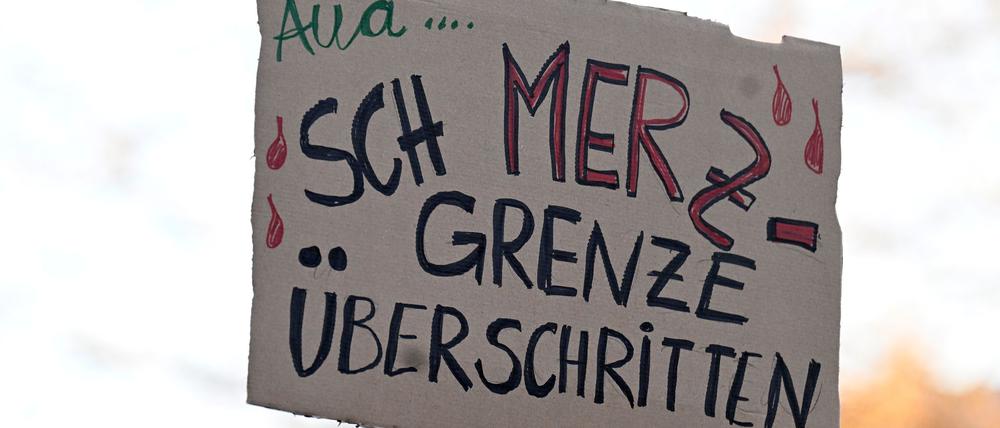 Aua ....
SCHMERZ-
GRENZE
ÜBERSCHRiTTEN